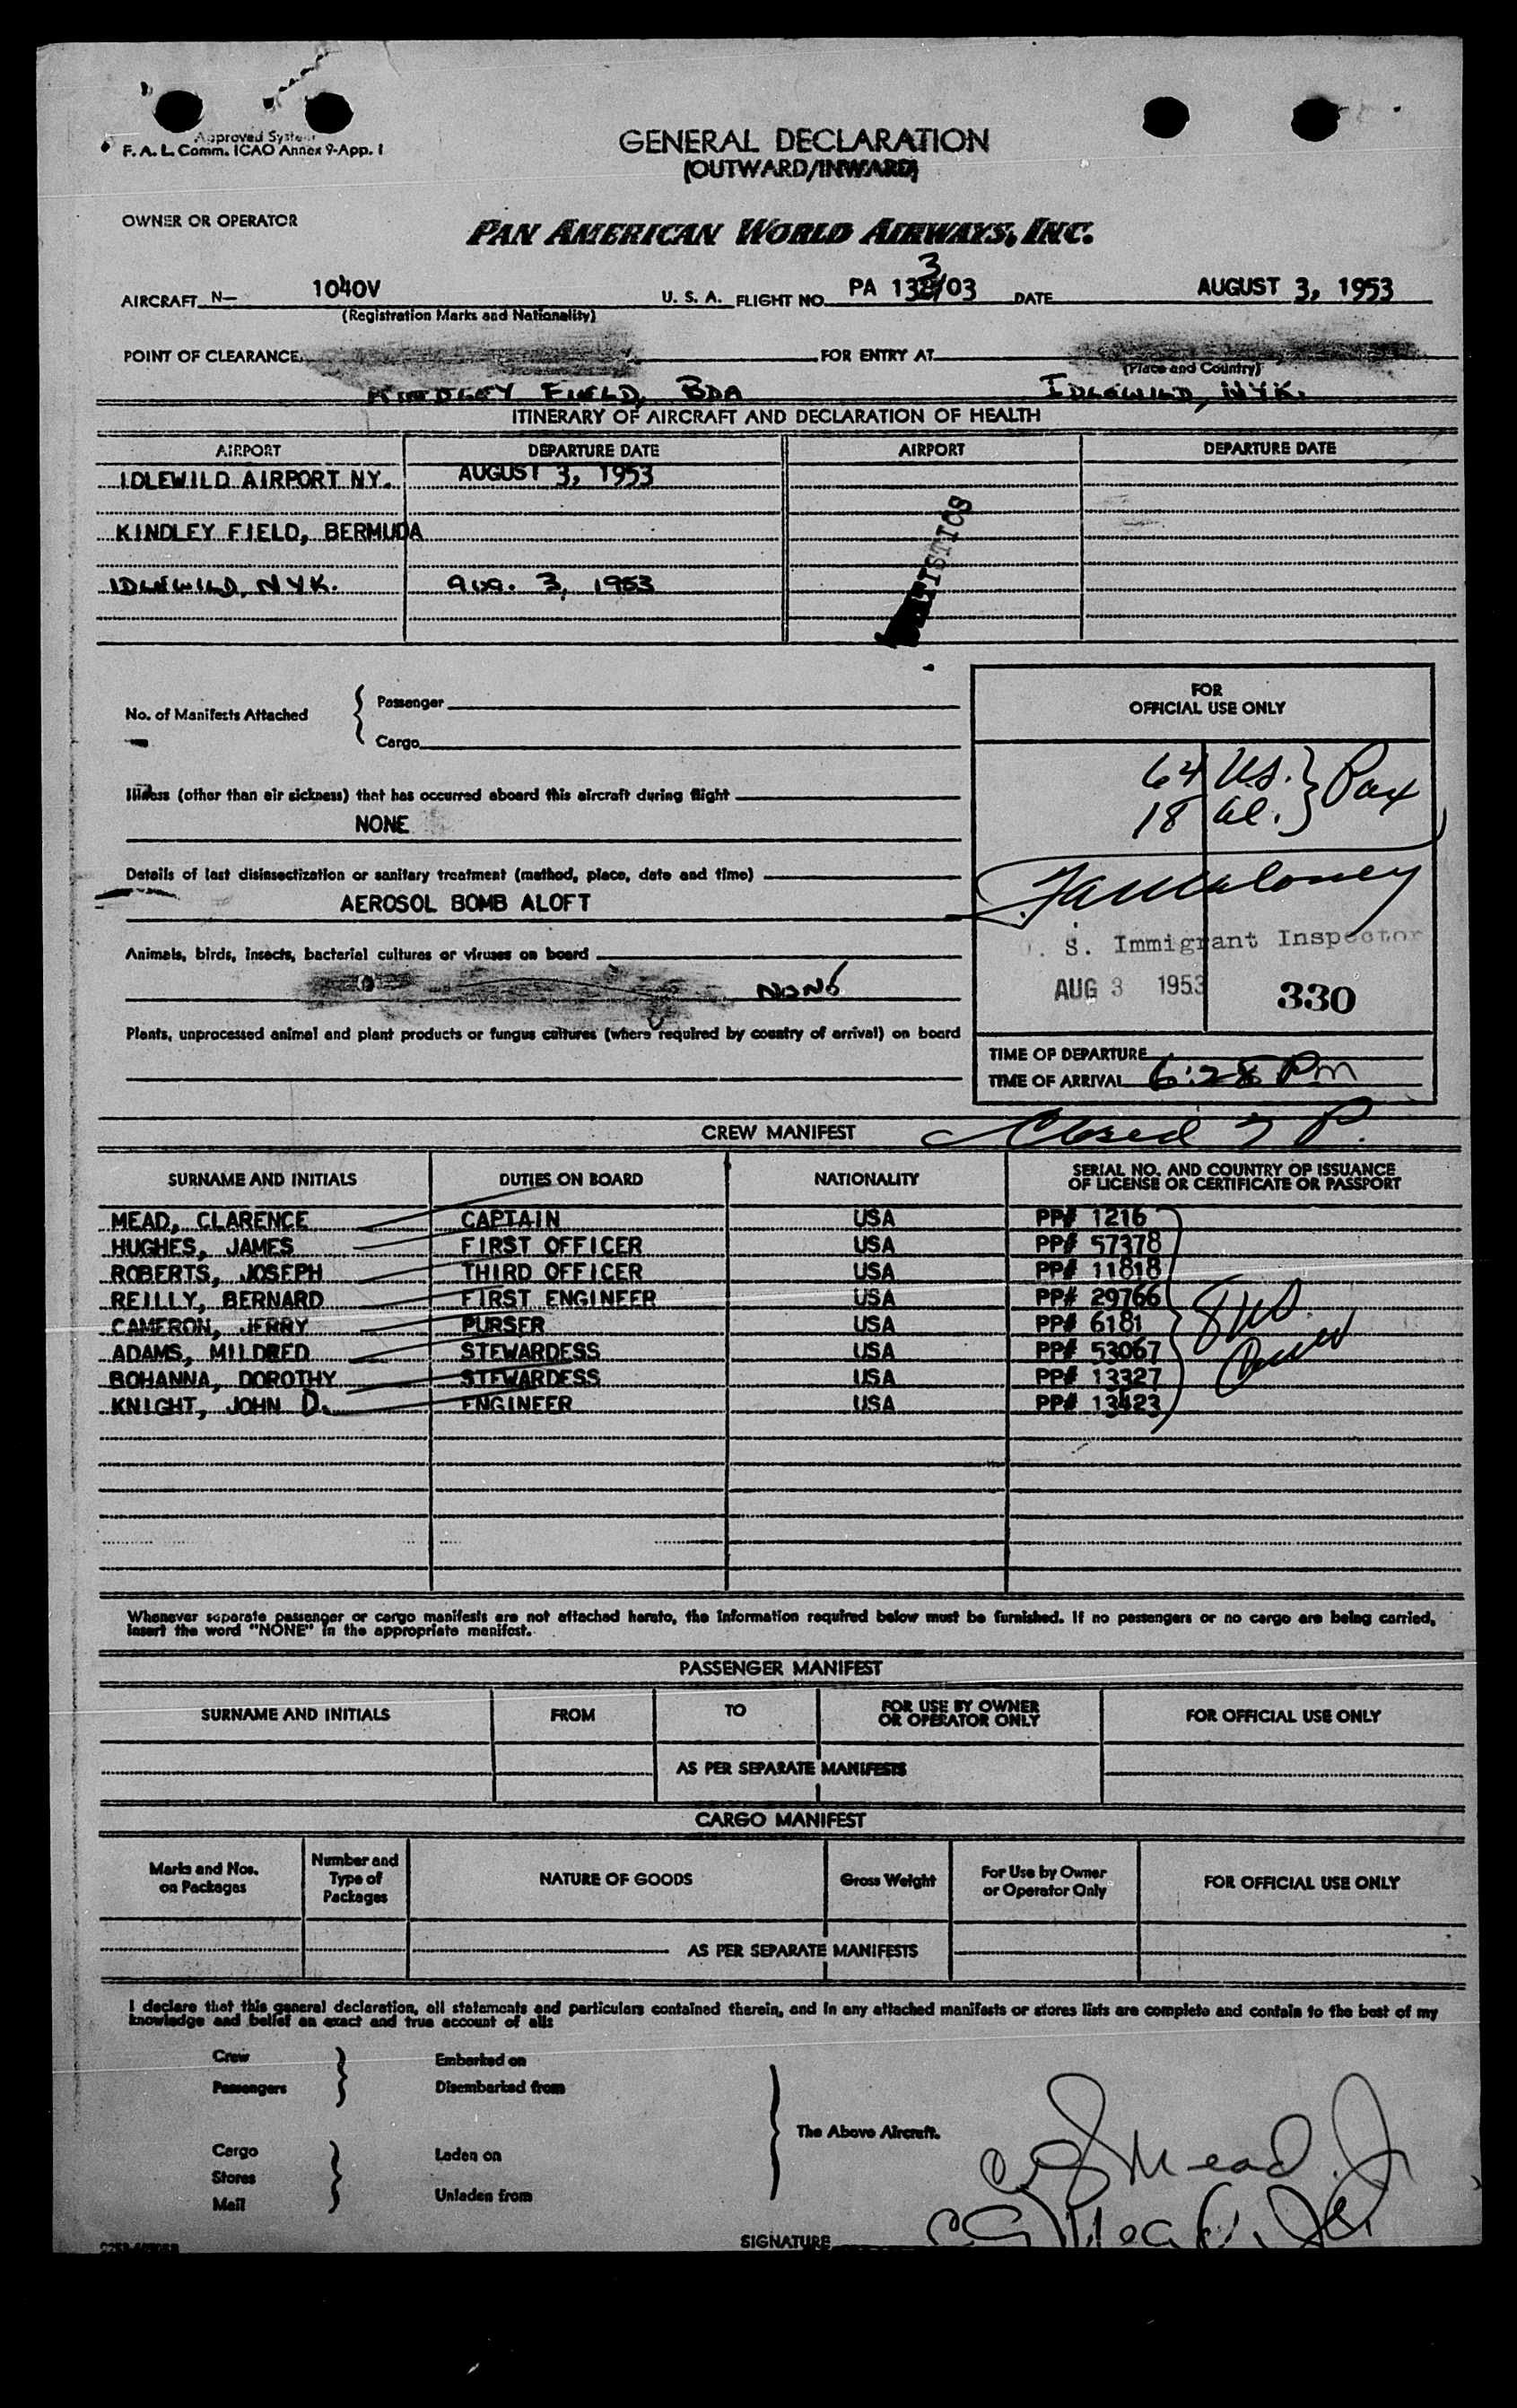 Approved System
F. A. L. Comm. ICAO Annex 9-App. 1
GENERAL DECLARATION
(OUTWARD/INWARD)
OWNER OR OPERATOR
PAN AMERICAN WORLD AIRWAYS, INC.
AIRCRAFT N- 1040V U. S. A. FLIGHT NO. PA 133/03 DATE AUGUST 3, 1953
(Registration Marks and Nationality)
POINT OF CLEARANCE FOR ENTRY AT
(Place and Country)
KINDLEY FIELD, BDA IDLEWILD, NYK.
ITINERARY OF AIRCRAFT AND DECLARATION OF HEALTH
AIRPORT DEPARTURE DATE AIRPORT DEPARTURE DATE
IDLEWILD AIRPORT NY. AUGUST 3, 1953
KINDLEY FIELD, BERMUDA
IDLEWILD, NYK. AUG. 3, 1953
No. of Manifests Attached { Passenger
Cargo
FOR
OFFICIAL USE ONLY
64 US. } Pax
18 al.
Illness (other than air sickness) that has occurred aboard this aircraft during flight
NONE
Details of last disinsectization or sanitary treatment (method, place, date and time)
AEROSOL BOMB ALOFT
Animals, birds, insects, bacterial cultures or viruses on board
NONE
Plants, unprocessed animal and plant products or fungus cultures (where required by country of arrival) on board
S. Immigrant Inspector
AUG 3 1953 330
TIME OF DEPARTURE
TIME OF ARRIVAL 6:28 Pm
CREW MANIFEST Closed 7 P.
SURNAME AND INITIALS DUTIES ON BOARD NATIONALITY SERIAL NO. AND COUNTRY OF ISSUANCE
OF LICENSE OR CERTIFICATE OR PASSPORT
MEAD, CLARENCE CAPTAIN USA PP# 1216
HUGHES, JAMES FIRST OFFICER USA PP# 57378
ROBERTS, JOSEPH THIRD OFFICER USA PP# 11818
REILLY, BERNARD FIRST ENGINEER USA PP# 29766
CAMERON, JERRY PURSER USA PP# 6181
ADAMS, MILDRED STEWARDESS USA PP# 53067
BOHANNA, DOROTHY STEWARDESS USA PP# 13327
KNIGHT, JOHN D. ENGINEER USA PP# 13423
Whenever separate passenger or cargo manifests are not attached hereto, the information required below must be furnished. If no passengers or no cargo are being carried,
insert the word "NONE" in the appropriate manifest.
PASSENGER MANIFEST
SURNAME AND INITIALS FROM TO FOR USE BY OWNER
OR OPERATOR ONLY FOR OFFICIAL USE ONLY
AS PER SEPARATE MANIFESTS
CARGO MANIFEST
Marks and Nos.
on Packages Number and
Type of
Packages NATURE OF GOODS Gross Weight For Use by Owner
or Operator Only FOR OFFICIAL USE ONLY
AS PER SEPARATE MANIFESTS
I declare that this general declaration, all statements and particulars contained therein, and in any attached manifests or stores lists are complete and contain to the best of my
knowledge and belief an exact and true account of all:
Crew Embarked on
Passengers Disembarked from
The Above Aircraft.
Cargo Laden on
Stores
Mail Unladen from
C G Mead Jr
SIGNATURE C G Mead, Jr